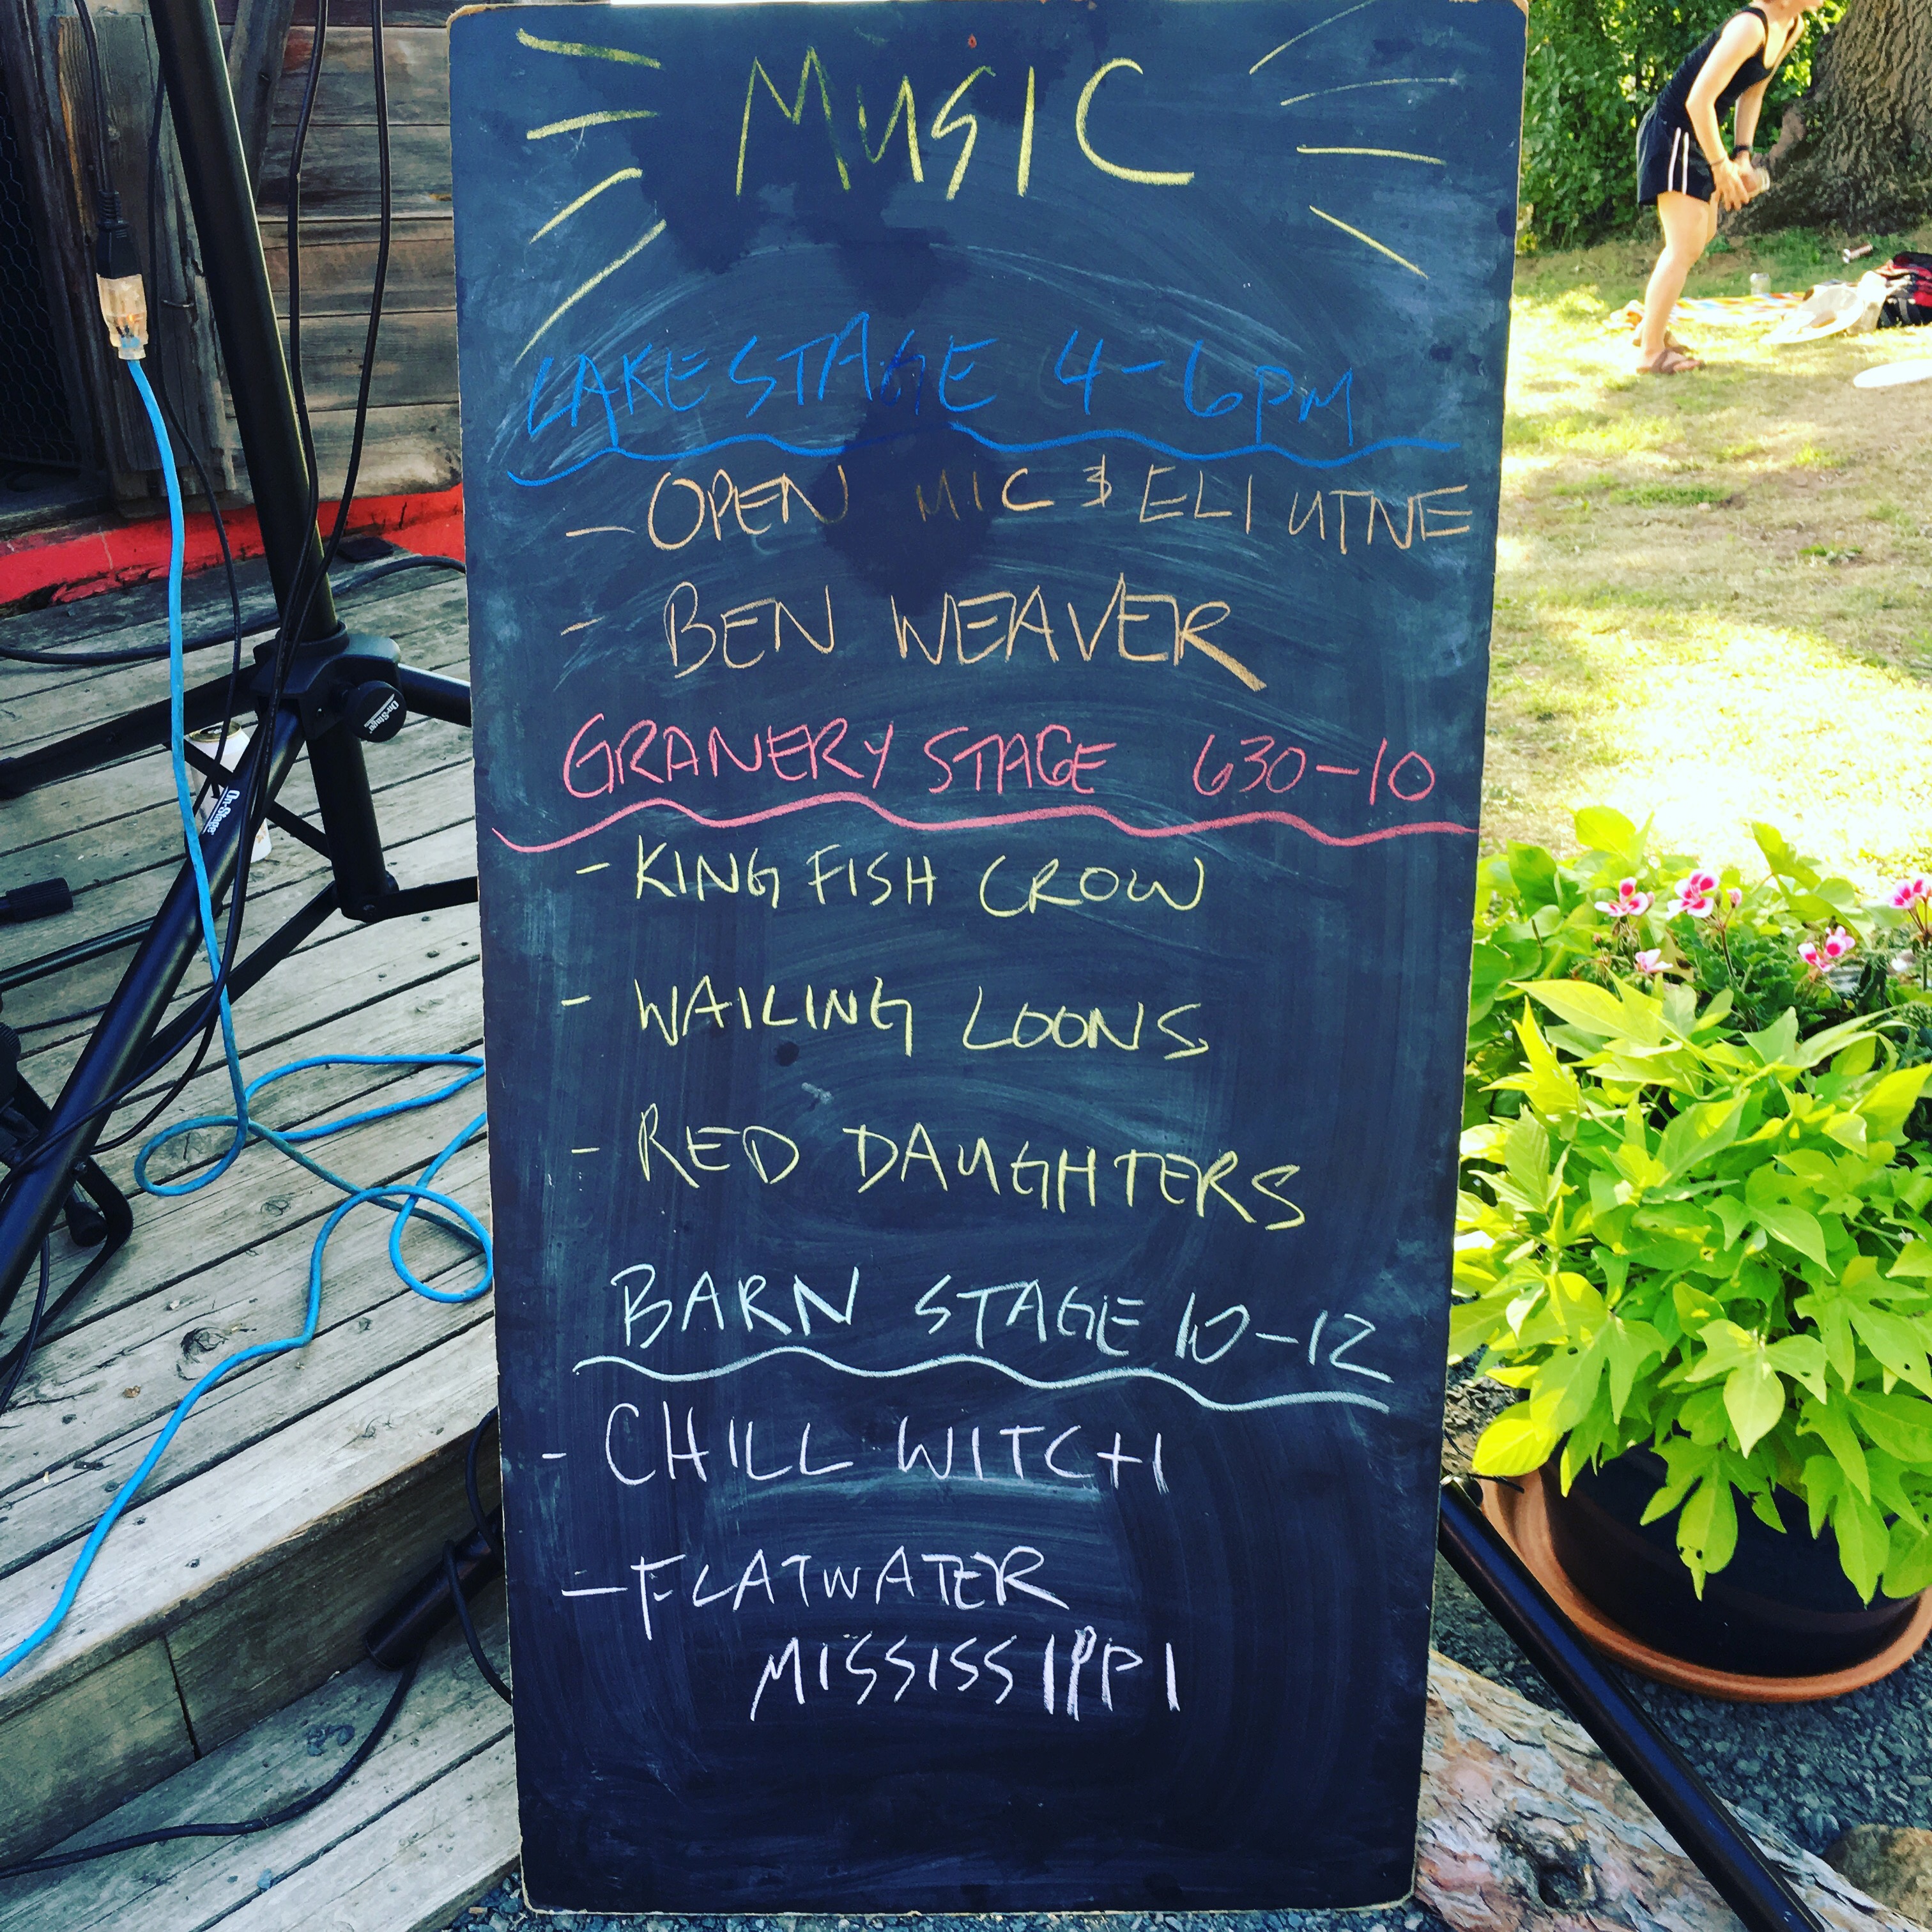 MUSIC
LAKE STAGE 4-6PM
- OPEN MIC & ELI UTNE
- BEN WEAVER
GRANERY STAGE 630-10
- KING FISH CROW
- WAILING LOONS
- RED DAUGHTERS
BARN STAGE 10-12
- CHILL WITCH
- FLATWATER
MISSISSIPPI
On-Stage
On-Stage